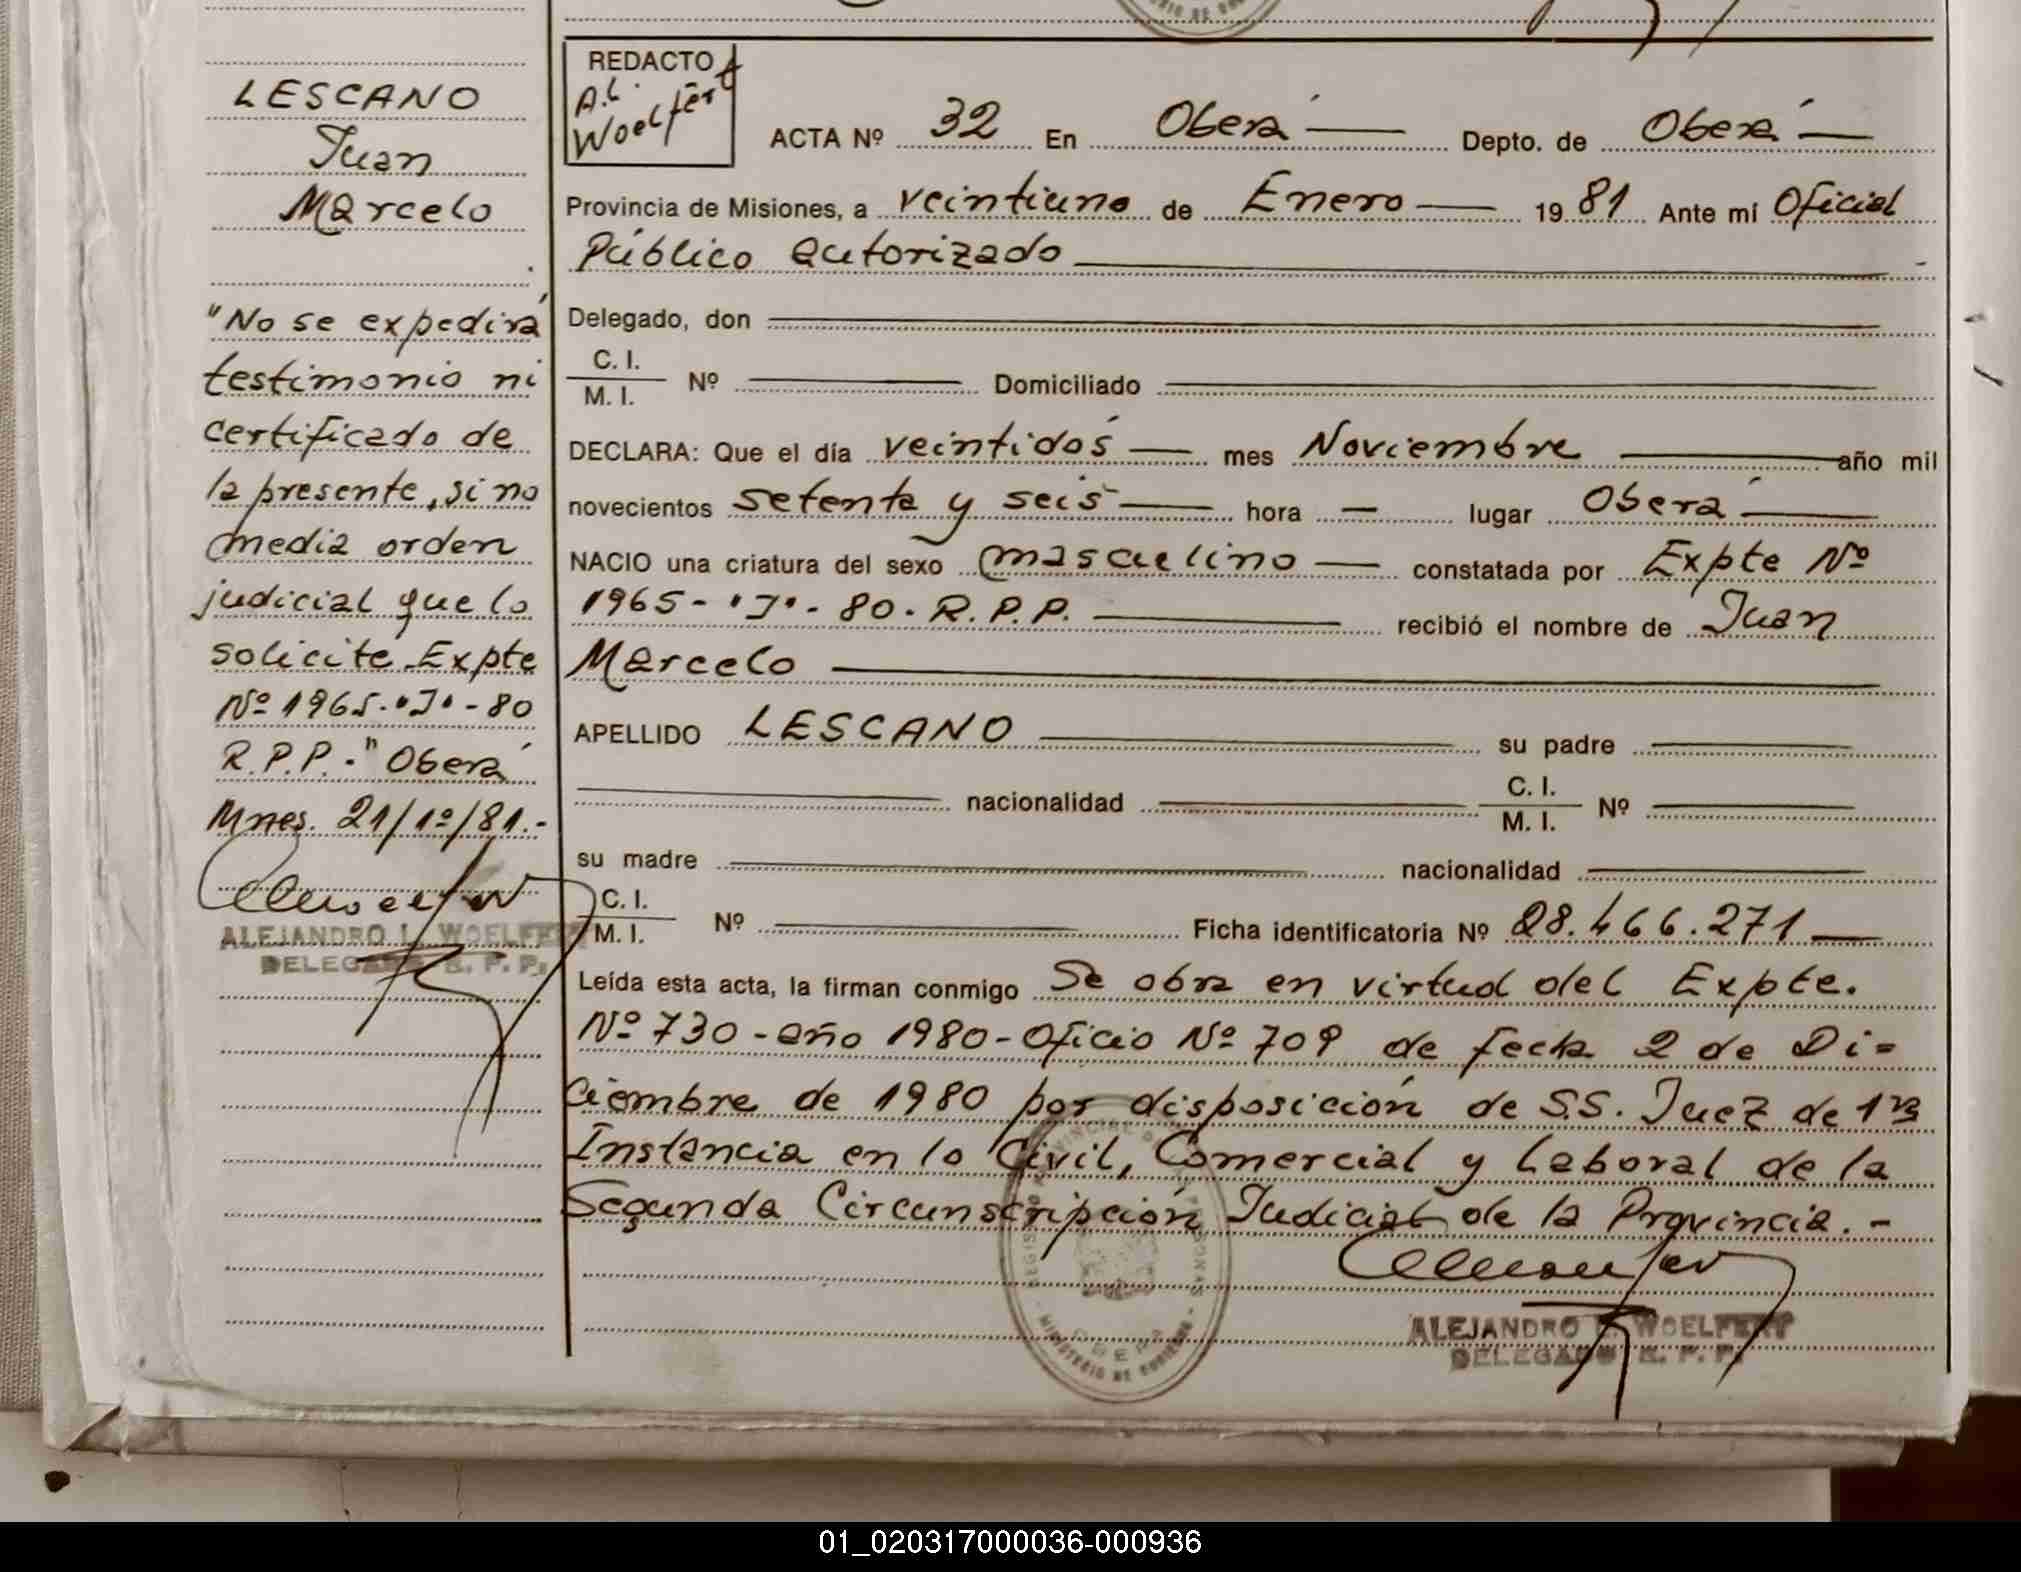 LESCANO
Juan
Marcelo
"No se expedirá
testimonio ni
certificado de
la presente, si no
media orden
judicial que lo
solicite Expte
Nº 1965-"J"-80
R.P.P.-" Oberá
Mnes. 21/1º/81.-
ALEJANDRO L. WOELFERT
DELEGADO R. P. P.
REDACTO
A.L.
Woelfert
ACTA Nº 32 En Oberá Depto. de Oberá
Provincia de Misiones, a veintiuno de Enero 1981 Ante mí Oficial
Público autorizado
Delegado, don
C. I.
M. I. Nº Domiciliado
DECLARA: Que el día veintidós mes Noviembre año mil
novecientos setenta y seis hora — lugar Oberá
NACIO una criatura del sexo masculino constatada por Expte Nº
1965-"J"-80-R.P.P. recibió el nombre de Juan
Marcelo
APELLIDO LESCANO su padre
nacionalidad C. I. M. I. Nº
su madre nacionalidad
C. I.
M. I. Nº Ficha identificatoria Nº 28.466.271
Leída esta acta, la firman conmigo Se obra en virtud del Expte.
Nº 730-año 1980-Oficio Nº 709 de fecha 2 de Di=
ciembre de 1980 por disposición de S.S. Juez de 1ra
Instancia en lo Civil, Comercial y Laboral de la
Segunda Circunscripción Judicial de la Provincia.-
MINISTERIO DE GOBIERNO
ALEJANDRO L. WOELFERT
DELEGADO R. P. P.
01_020317000036-000936